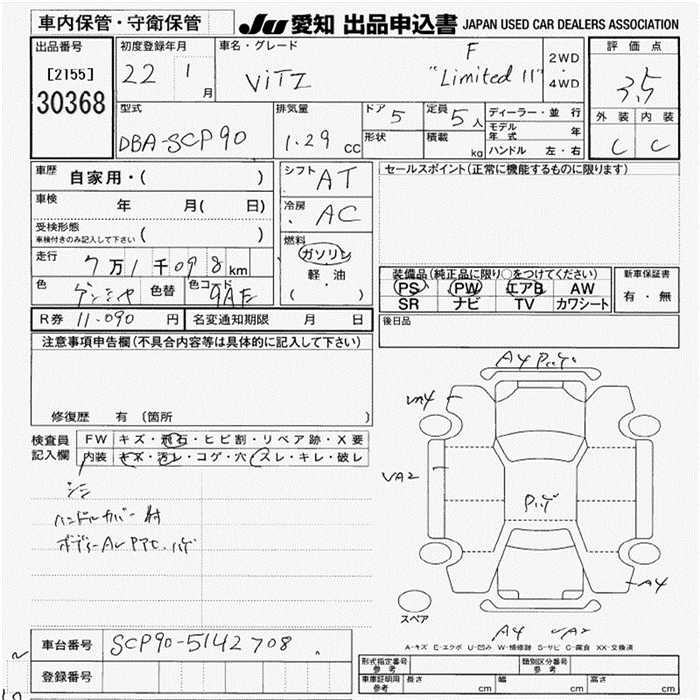 車内保管・守衛保管
JU 愛知 出品申込書 JAPAN USED CAR DEALERS ASSOCIATION
出品番号
[2155]
30368
初度登録年月
22 1 月
車名・グレード
ViTZ
F
"Limited II"
2WD
・
4WD
評価点
3.5
外装 内装
C C
型式
DBA-SCP90
排気量
1.29 cc
ドア 5
形状
定員 5 人
積載 kg
ディーラー・並行
モデル年式 年
ハンドル 左・右
車歴
自家用・( )
車検
年 月( 日)
受検形態
車検付きのみ記入して下さい ( )
走行
7万1千098km
色
色替
色コード
9AE
シフト
AT
冷房
AC
燃料
ガソリン
軽油
( )
セールスポイント(正常に機能するものに限ります)
装備品(純正品に限り○をつけてください)
PS PW エアB AW
SR ナビ TV カワシート
新車保証書
有・無
R券 11.090 円
名変通知期限 月 日
後日品
注意事項申告欄(不具合内容等は具体的に記入して下さい)
修復歴 有 〔箇所 〕
検査員
記入欄
FW キズ・飛石・ヒビ割・リペア跡・X要
内装 キズ・汚レ・コゲ・穴・スレ・キレ・破レ
シミ
ハンドルカバー付
A4
A2
A4
スペア
A4
A-キズ E-エクボ U-凹み W-補修跡 S-サビ C-腐食 XX-交換済
車台番号
SCP90-5142708
登録番号
形式指定番号
参考
類別区分番号
参考
車庫証明用
参考
長さ cm
幅 cm
高さ cm